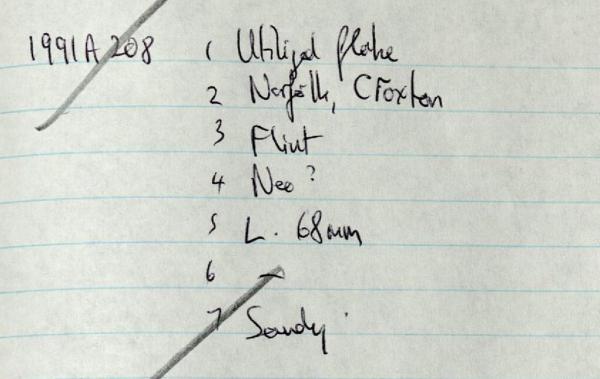 1991A 208 1 Utilized flake
2 Norfolk, Croxton
3 Flint
4 Neo?
5 L. 68mm
6 —
7 Sandy